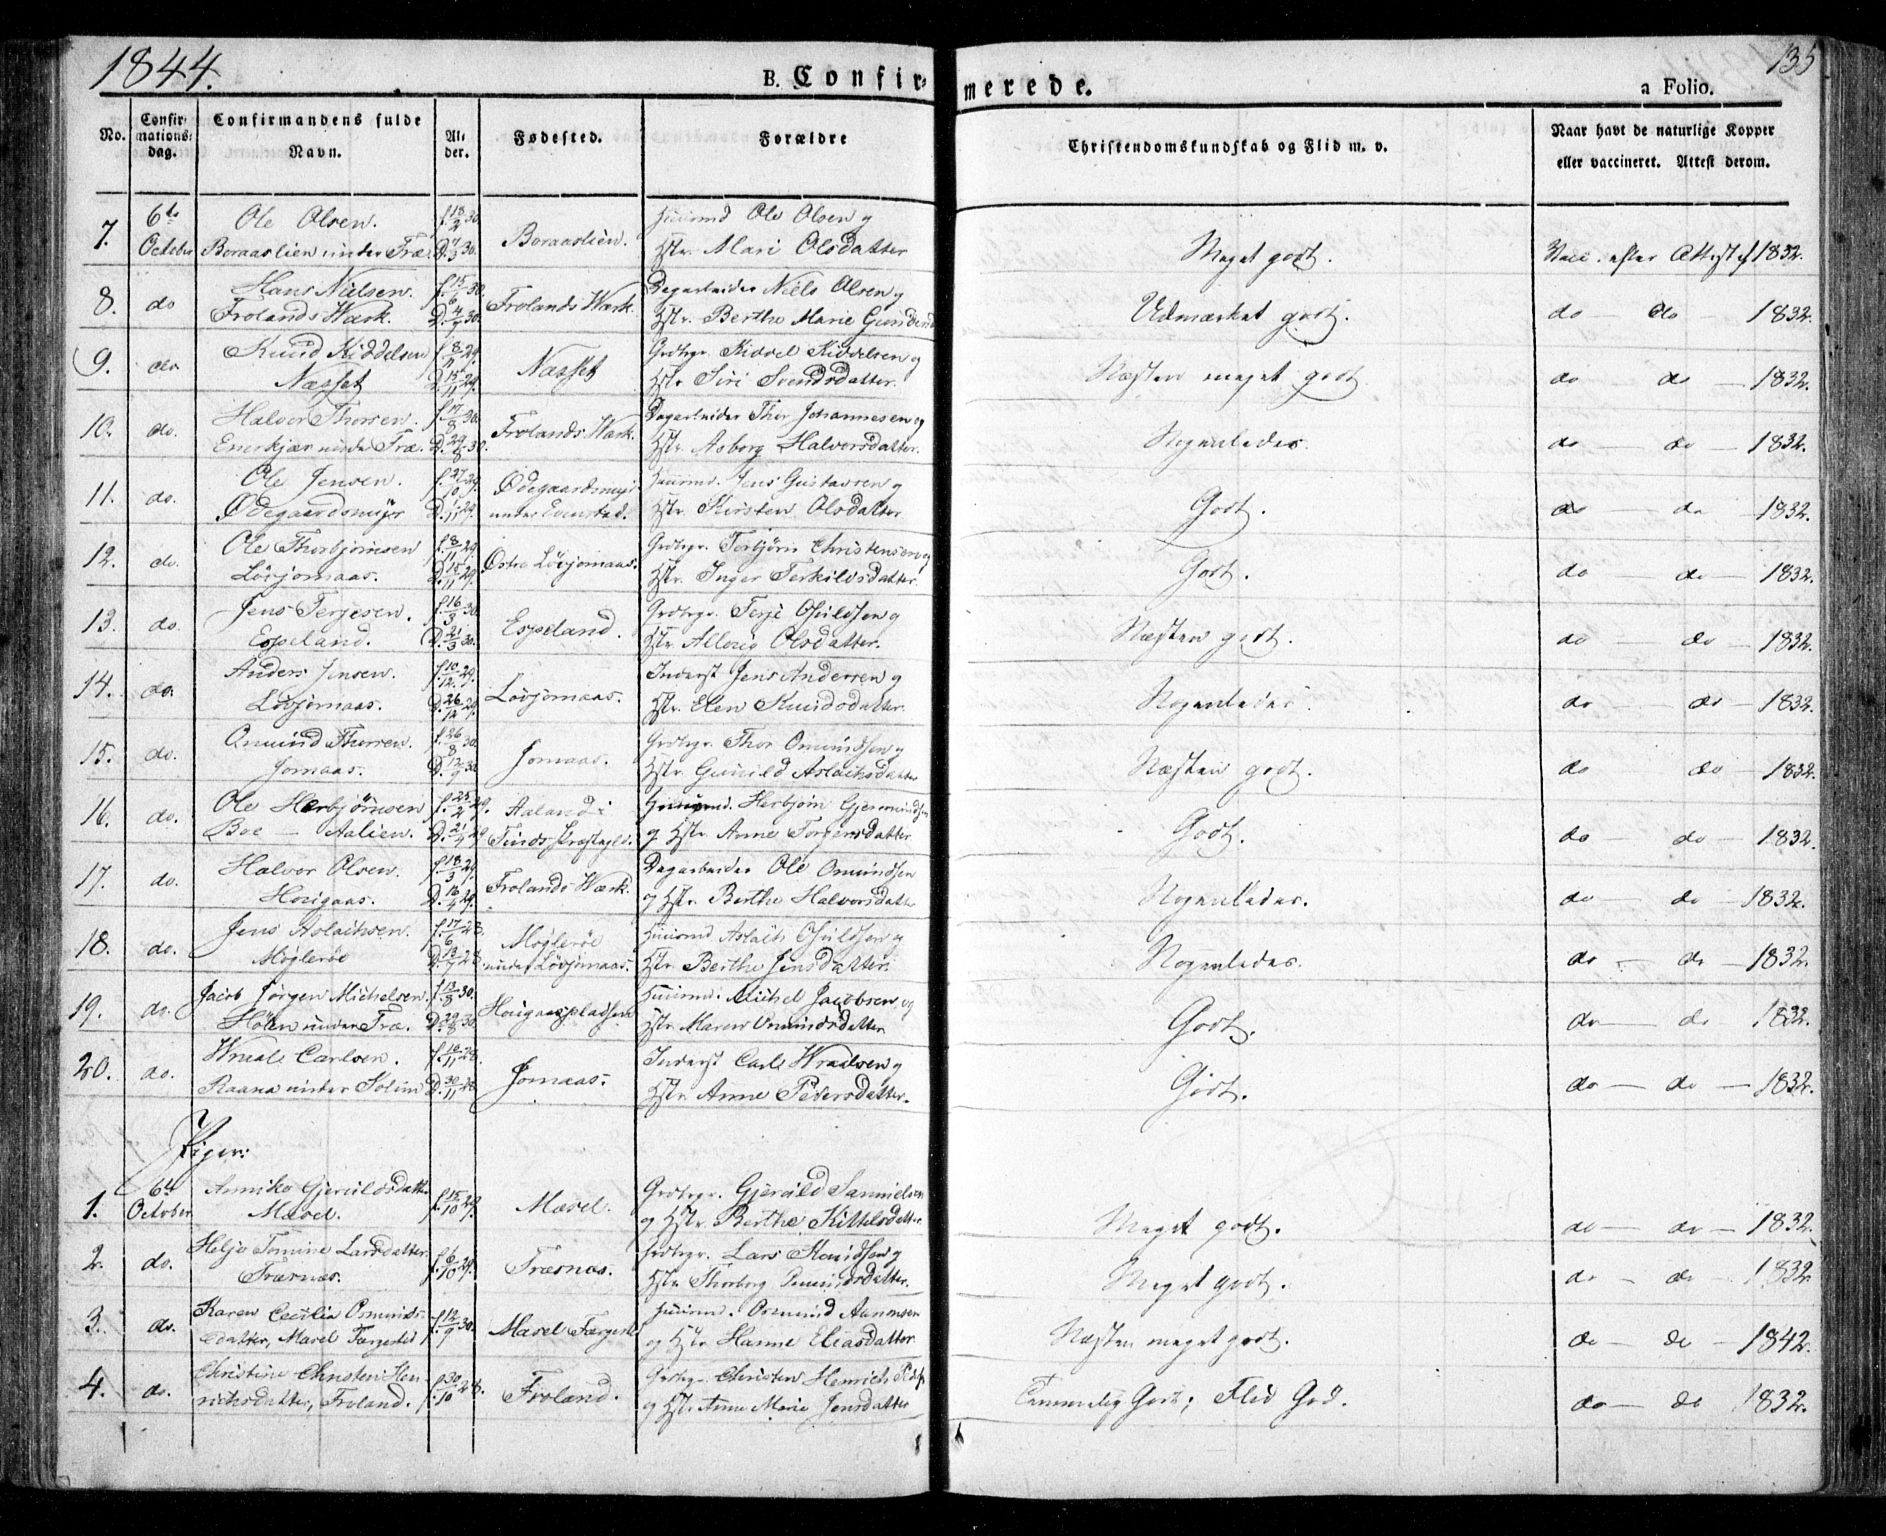 1844.
135
B. Confirmerede.
a Folio.
No.
Confirmations-dag.
Confirmandens fulde Navn.
Alder.
Fødested.
Forældre
Christendomskundskab og Flid m. v.
Naar havt de naturlige Kopper eller vaccineret. Attest derom.
7. 6te October Ole Olsen. Boraaslien under Træ. f. 18/2 30. D. 7/3 30. Boraaslien. Huusmd Ole Olsen og Hstr. Mari Olsdatter Meget godt. Vacc. efter Attest f 1832.
8. do Hans Nielsen. Frolands Værk. f. 15/6 30. D. 4/7 30. Frolands Værk. Dagarbeider Niels Olsen og Hstr. Berthe Marie Udmærket godt. do do 1832.
9. do. Knud Kiddelsen Næsset D. 15/11 29. Næsset Grdbrgr. Kiddel Kiddelsen og Hstr Siri Svendsdatter. Næsten meget godt. do do 1832.
10. do. Halvor Thorsen. Enerkjær under Træ. f. 17/8 30. D. 29/8 30. Frolands Værk. Dagarbeider Thor Johannesen og Hstr. Asborg Halvorsdatter. Nogenledes. do do 1832.
11. do. Ole Jensen. Ødegaardsmyr f. 27/10 29. D. 1/11 29. Ødegaardsmyr under Evenstad. Huusmd. Jens Gustavsen og Hstr. Kirsten Olsdatter Godt. do do 1832.
12. do. Ole Thorbjørnsen Løvjomaas. f. 8/11 29. D. 15/11 29. Østre Løvjomaas. Grdbrgr. Torbjørn Christensen og Hstr. Inger Terkildsdatter. Godt. do do 1832.
13. do. Jens Terjesen. Espeland. f. 16/3 30. D. 21/3 30. Espeland. Grdbrgr. Terje Osuldsen og Hstr. Olsdatter. Næsten godt. do do 1832.
14. do. Anders Jensen. Løvjomaas. f. 10/12 29. D. 26/12 29. Løvjomaas. Inderst Jens Andersen og Hstr. Elen Knudsdatter. Nogenledes. do do 1832.
15. do. Omund Thorsen. Jomaas. f. 26/8 30. D. 12/9 30. Jomaas. Grdbrgr. Thor Omundsen og Hstr. Gunild Aslachsdatter Næsten godt. do do 1832.
16. do. Ole Herbjørnsen Boe — Aalien. D. 21/4 29 Aaland i Tinds Præstegjld. Huusmd. Herbjørn Gjermundsen og Hstr. Anne Torgersdatter Godt. do do 1832.
17. do. Halvor Olsen. Hougaas. f. 18/3 29. D. 16/4 29. Frolands Værk. Dagarbeider Ole Omundsen og Hstr. Berthe Halvorsdatter Nogenledes. do do 1832.
18. do. Jens Aslachsen. Møglerøe f. 17/6 28. D. 13/7 28. Møglerøe under Løvjomaas. Huusmd Aslach Osuldsen og Hstr. Berthe Jensdatter. Nogenledes. do do 1832.
19. do. Jacob Jørgen Michelsen. Hølen under Træ. f. 13/8 30. D. 29/8 30. Hougaaspladsen Huusmd. Michel Jacobsen og Hstr Maren Omundsdatter Godt. do do 1832.
20. do. Wraale Carlsen. Raana under Solum f. 16/11 28. D. 30/11 28. Jomaas. Inderst Carl Wraalsen og Hstr. Anne Pedersdatter. Godt. do do 1832.
Piger:
1. 6te October Anniken Gjeruldsdatt. Mæsel. f. 15/10 29. Mæsel. Grdbrgr. Gjeruld Samuelsen og Hstr. Berthe Kittelsdatter. Meget godt. do do 1832.
2. do. Helje Tomine Larsdatter. Træsnæs. f. 6/10 29. Træsnæs. Grdbrgr. Lars Knudsen og Hstr. Thorborg Omundsdatter. Meget godt. do do 1832.
3. do. Karen Cecilia Osmundsdatter, Mæsel Færgested f. 12/9 30. Mæsel Færgest. Huusmd. Osmund Aanonsen og Hstr Hanne Eliasdatter Næsten meget godt. do do 1842.
4. do. Christine Christen Henrichsdatter, Froland. f. 30/10 28. Froland. Grdbrgr. Christen Henrich og Hstr. Anne Marie Jensdatter Temmelig Godt; Flid God. do do 1832.